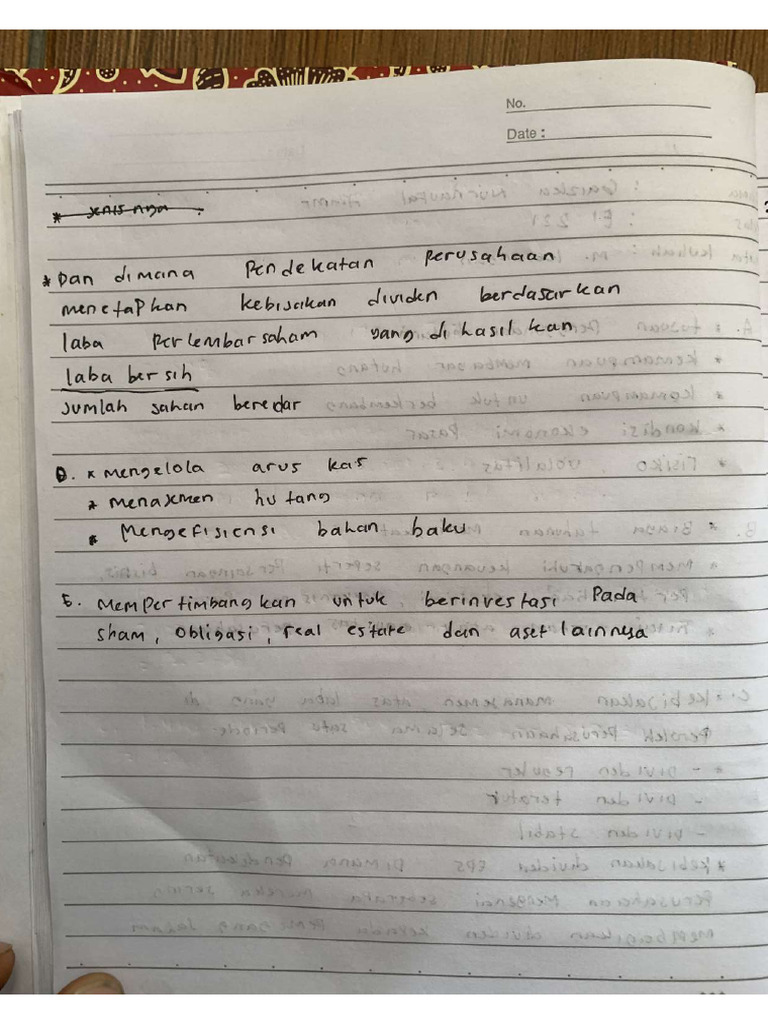 No.
Date :
* Jenisnya :
* Dan dimana Pendekatan Perusahaan
menetapkan kebijakan dividen berdasarkan
laba Perlembar saham yang di hasil kan
laba bersih
Jumlah sahan beredar
D. * mengelola arus kas
* menajemen hutang
* Mengefisiensi bahan baku
E. mempertimbangkan untuk berinvestasi Pada
sham, obligasi, real estate dan aset lainnya